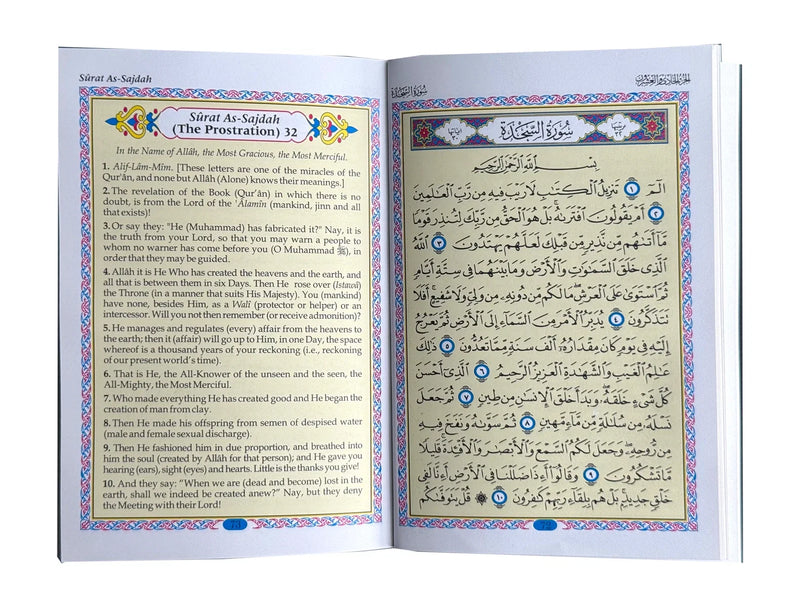 Sûrat As-Sajdah
Sûrat As-Sajdah
(The Prostration) 32
In the Name of Allâh, the Most Gracious, the Most Merciful.
1. Alif-Lâm-Mîm. [These letters are one of the miracles of
the Qur'ân, and none but Allâh (Alone) knows their meanings.]
2. The revelation of the Book (Qur'ân) in which there is no
doubt, is from the Lord of the 'Âlamîn (mankind, jinn and all
that exists)!
3. Or say they: "He (Muhammad) has fabricated it?" Nay, it is
the truth from your Lord, so that you may warn a people to
whom no warner has come before you (O Muhammad ﷺ), in
order that they may be guided.
4. Allâh it is He Who has created the heavens and the earth, and
all that is between them in six Days. Then He rose over (Istawâ)
the Throne (in a manner that suits His Majesty). You (mankind)
have none, besides Him, as a Walî (protector or helper) or an
intercessor. Will you not then remember (or receive admonition)?
5. He manages and regulates (every) affair from the heavens to
the earth; then it (affair) will go up to Him, in one Day, the space
whereof is a thousand years of your reckoning (i.e., reckoning
of our present world's time).
6. That is He, the All-Knower of the unseen and the seen, the
All-Mighty, the Most Merciful.
7. Who made everything He has created good and He began the
creation of man from clay.
8. Then He made his offspring from semen of despised water
(male and female sexual discharge).
9. Then He fashioned him in due proportion, and breathed into
him the soul (created by Allâh for that person); and He gave you
hearing (ears), sight (eyes) and hearts. Little is the thanks you give!
10. And they say: "When we are (dead and become) lost in the
earth, shall we indeed be created anew?" Nay, but they deny
the Meeting with their Lord!
سُورَةُ السَّجْدَةِ
الجزء الحادي والعشرون
سُورَةُ السَّجْدَةِ
بِسْمِ اللَّهِ الرَّحْمَٰنِ الرَّحِيمِ
الٓمٓ ١ تَنزِيلُ الْكِتَٰبِ لَا رَيْبَ فِيهِ مِن رَّبِّ الْعَٰلَمِينَ
٢ أَمْ يَقُولُونَ افْتَرَىٰهُ بَلْ هُوَ الْحَقُّ مِن رَّبِّكَ لِتُنذِرَ قَوْمًا
مَّا أَتَىٰهُم مِّن نَّذِيرٍ مِّن قَبْلِكَ لَعَلَّهُمْ يَهْتَدُونَ ٣ اللَّهُ
الَّذِى خَلَقَ السَّمَٰوَٰتِ وَالْأَرْضَ وَمَا بَيْنَهُمَا فِى سِتَّةِ أَيَّامٍ
ثُمَّ اسْتَوَىٰ عَلَى الْعَرْشِ مَا لَكُم مِّن دُونِهِ مِن وَلِىٍّ وَلَا شَفِيعٍ أَفَلَا
تَتَذَكَّرُونَ ٤ يُدَبِّرُ الْأَمْرَ مِنَ السَّمَآءِ إِلَى الْأَرْضِ ثُمَّ يَعْرُجُ
إِلَيْهِ فِى يَوْمٍ كَانَ مِقْدَارُهُ أَلْفَ سَنَةٍ مِّمَّا تَعُدُّونَ ٥ ذَٰلِكَ
عَٰلِمُ الْغَيْبِ وَالشَّهَٰدَةِ الْعَزِيزُ الرَّحِيمُ ٦ الَّذِى أَحْسَنَ
كُلَّ شَىْءٍ خَلَقَهُ وَبَدَأَ خَلْقَ الْإِنسَٰنِ مِن طِينٍ ٧ ثُمَّ جَعَلَ
نَسْلَهُ مِن سُلَٰلَةٍ مِّن مَّآءٍ مَّهِينٍ ٨ ثُمَّ سَوَّىٰهُ وَنَفَخَ فِيهِ
مِن رُّوحِهِ وَجَعَلَ لَكُمُ السَّمْعَ وَالْأَبْصَٰرَ وَالْأَفْـِٔدَةَ قَلِيلًا
مَّا تَشْكُرُونَ ٩ وَقَالُوا أَءِذَا ضَلَلْنَا فِى الْأَرْضِ أَءِنَّا لَفِى
خَلْقٍ جَدِيدٍ بَلْ هُم بِلِقَآءِ رَبِّهِمْ كَٰفِرُونَ ١٠ ۞ قُلْ يَتَوَفَّىٰكُم